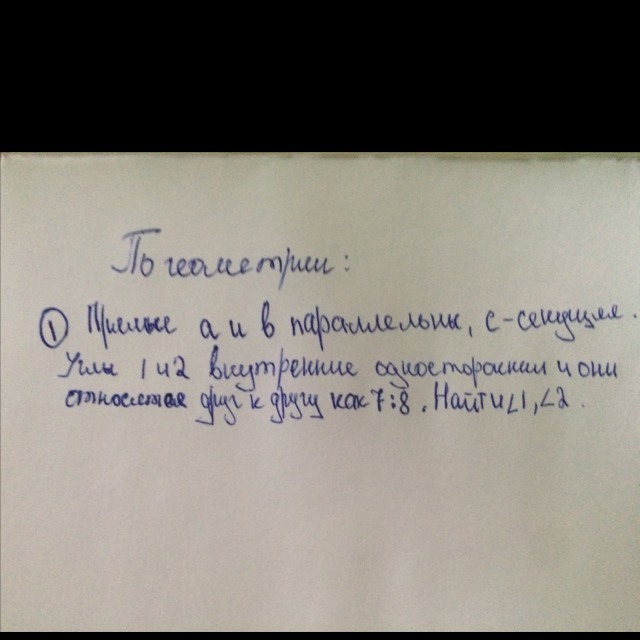 По геометрии:
① Прямые а и в параллельны, с-секущая.
Углы 1 и 2 внутренние односторонии и они
относятся друг к другу как 7:8. Найти ∠1, ∠2.